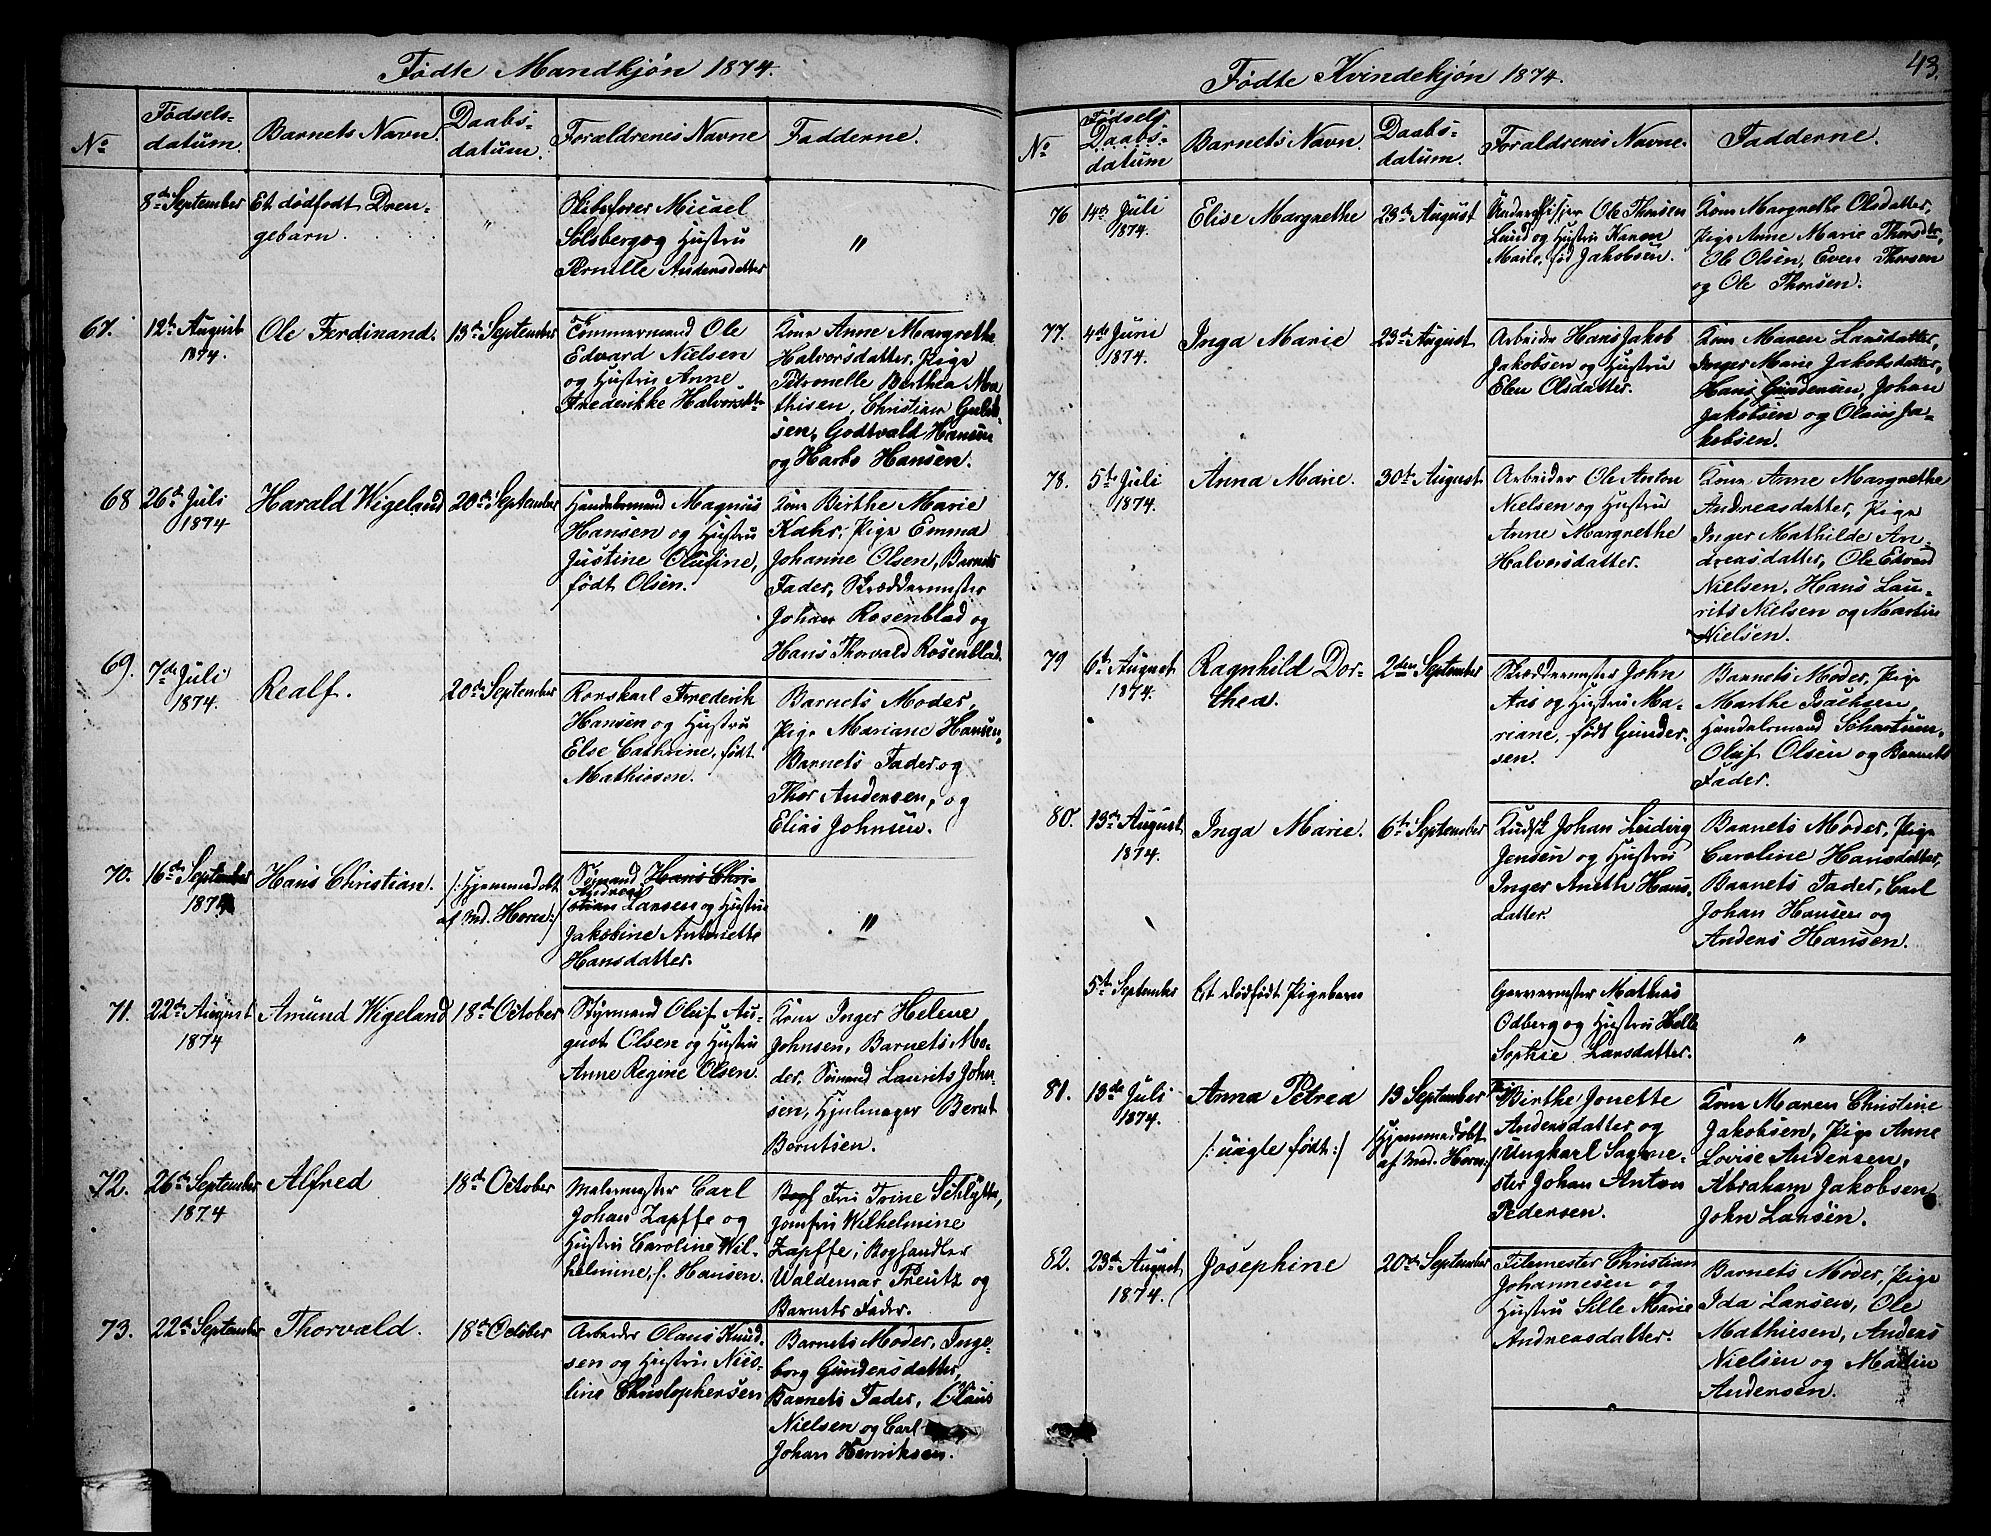 Fødte Mandkjøn 1874.
No
Fødsels-
datum.
Barnets Navn.
Daabs-
datum.
Foraldrenes Navne
Fadderne.
8de September
Et dødfødt Dren-
gebarn.
"
Skibsfører Micael
Solsberg og Hustru
Pernille Andersdatter
"
67.
12te August
1874.
Ole Ferdinand.
13de September
Tømmermand Ole
Edvard Nielsen
og Hustru Anne
Frederikke Halvorsdtr
Kone Anne Margrethe
Halvorsdatter, Pige
Petronelle Berthea Ma-
thisen, Christian
sen, Godtvald Hansen
og Hansen.
68
26de Juli
1874
Harald Wigeland
20de September
Handelsmand Magnus
Hansen og Hustru
Justine Olufine,
født Olsen.
Kone Birthe Marie
Kahrs, Pige Emma
Johanne Olsen, Barnets
Fader, Skræddermester
Johan Rosenblad og
Hans Thorvald Rosenblad.
69.
7de Juli
1874.
Realf.
20de September
Rorskarl Frederik
Hansen og Hustru
Else Cathrine, født
Mathiesen.
Barnets Moder,
Pige Mariane Hansen,
Barnets Fader og
Thor Andersen, og
Elias Johnsen.
70.
16de September
1874
Hans Christian.
/:Hjemmedøbt
af Md. Horn:/
Sømand Hans Chri-
Andreas
stian Larsen og Hustru
Jakobine Antonette
Hansdatter.
"
71.
22de August
1874
Amund Wigeland
18de October
Styrmand Oluf Au-
gust Olsen og Hustru
Anne Regine Olsen.
Kone Inger Helene
Johnsen, Barnets Mo-
der, Sømand Laurits John-
sen, Hjulmager Bernt
Berntsen.
72.
26de September
1874
Alfred
18de October
Malermester Carl
Johan Zapffe og
Hustru Caroline Wil-
helmine, f. Hansen.
Fru Trine Schlytter,
Jomfru Wilhelmine
Zapffe, Boghandler
Waldemar Preutz og
Barnets Fader.
73.
22de September
Thorvald.
18de October
Arbeider Olaus Knud-
sen og Hustru Nico-
line Christophersen
Barnets Moder, Inge-
borg Gundersdatter,
Barnets Fader, Olaus
Nielsen og Carl
Johan Henriksen.
43.
Fødte Kvindekjøn 1874.
No
Fødsels
Daabs-
datum
Barnets Navn.
Daabs-
datum.
Foraldrenes Navne.
Fadderne.
76
14de Juli
1874.
Elise Margrethe
23de August
Ole Thorsen
Lund og Hustru Karen
Marie, fød Jakobsen.
Kone Margrethe Olsdatter,
Pige Anne Marie Thorsdtr,
Ole Olsen, Even Thorsen
og Ole Thorsen.
77.
4de Juni
1874.
Inga Marie
23de August
Arbeider Hans Jakob
Jakobsen og Hustru
Elen Olsdatter.
Kone Maren Larsdatter,
Inger Marie Jakobsdatter,
Hans Gundersen, Johan
Jakobsen og Olaus Ja-
kobsen.
78.
5te Juli
1874.
Anna Marie.
30te August.
Arbeider Ole Anton
Nielsen og Hustru
Anne Margrethe
Halvorsdatter.
Kone Anne Margrethe
Andreasdatter, Pige
Inger Mathilde An-
dreasdatter, Ole Edvard
Nielsen, Hans Lau-
rits Nielsen og Martin
Nielsen.
79
6te August
1874.
Ragnhild Dor-
thea.
2den September
Skræddermester John
Aas og Hustru Ma-
riane, født Gunder-
sen.
Barnets Moder, Pige
Marthe Isachsen,
Handelsmand Schartum,
Oluf Olsen og Barnets
Fader.
80.
13de August
1874.
Inga Marie.
6te September
Kudsk Johan Ludvig
Jensen og Hustru
Inger Anette Hans-
datter.
Barnets Moder, Pige
Caroline Hansdatter,
Barnets Fader, Carl
Johan Hansen og
Anders Hansen.
5te September
Et dødfødt Pigebarn
Garvermester Mathias
Odberg og Hustru Helle
Sophie Larsdatter.
"
81.
13de Juli
1874.
Anna Petrea
/:uægte født:/
13 September
/:Hjemmedøbt
af Md. Horn:/
Pige
Birthe Jonette
Andersdatter og
Ungkarl Sagme-
ster Johan Anton
Pedersen.
Kone Maren Christine
Jakobsen, Pige Anne
Lovise Andersen,
Abraham Jakobsen,
John Larsen.
82.
23de August
1874.
Josephine
20de September
Filemester Christian
Johannesen og
Hustru Sille Marie
Andreasdatter.
Barnets Moder, Pige
Ida Larsen, Ole
Mathiesen, Anders
Nielsen og Martin
Andersen.